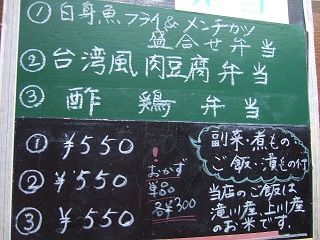 ① 白身魚フライ&メンチカツ
盛合せ弁当
② 台湾風肉豆腐弁当
③ 酢鶏弁当
① ¥550
② ¥550
③ ¥550
!
おかず
単品
各¥300
副菜・煮もの
ご飯・漬もの付
当店のご飯は
滝川産、上川産
のお米です。